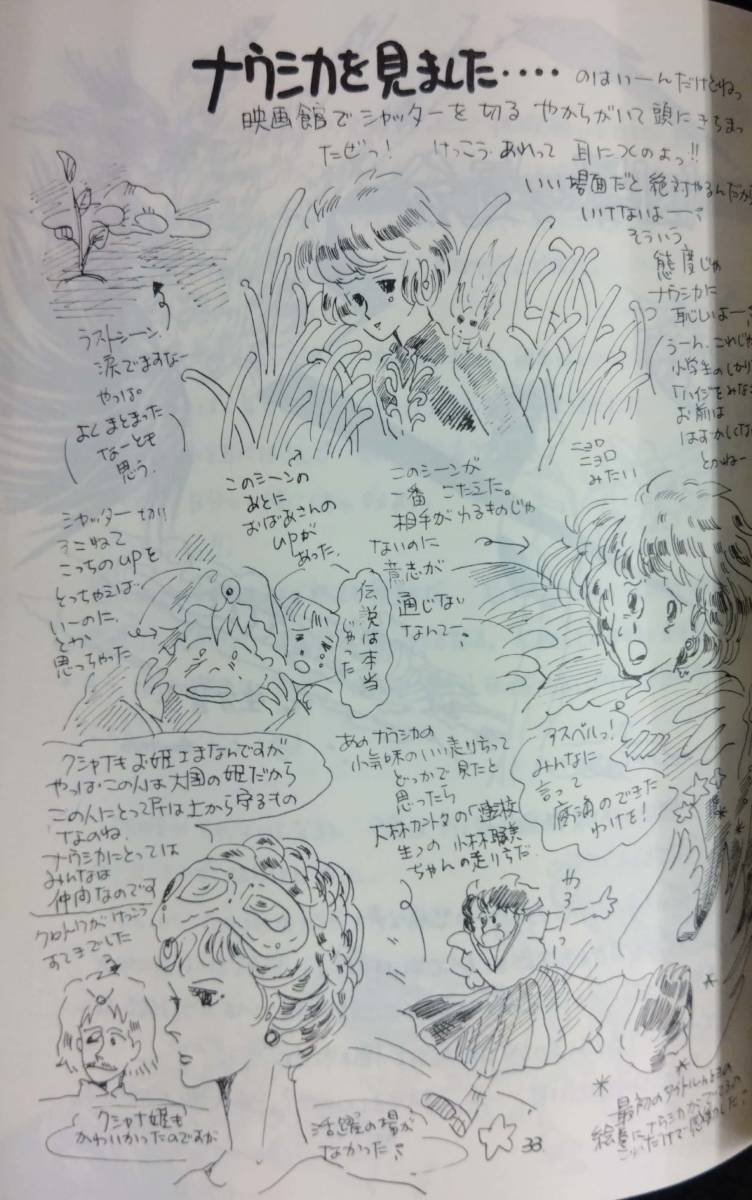 ナウシカを見ました‥‥のはいーんだけどねっ
映画館でシャッターを切る やからがいて頭にきちまっ
たぜっ! けっこうあれって耳につくのよっ!!
いい場面だと絶対やるんだから
いけないよー
そういう
態度じゃ
ナウシカに
恥しいよー
うーん、これじゃ
小学生のしかり
お前は
はずかしくない
とかねー
ラストシーン、
涙でますなー
やっぱ。
よくまとまった
なーとも
思う.
このシーンの
あとに
おばあさんの
UPが
あった.
このシーンが
一番 こたえた。
相手がわるものじゃ
ないのに
意志が
通じない
なんてー
ニョロ
ニョロ
みたい
シャッター切り!!
こっちのUPを
とっちゃえば
いーのに、
とか
思っちゃった
伝説は本当
じゃった
アスベルっ!
みんなに
言って
腐海のできた
わけを!
クシャナもお姫さまなんですが
やっぱこの人は大国の姫だから
この人にとって民は上から守るもの
なのね.
ナウシカにとっては
みんなは
仲間なのです
あのナウシカの
小気味のいい走り方って
どっかで見たと
思ったら
大林カントクの「転校
生」の 小林聡美
ちゃんの走り方だ.
クロトワがけっこう
すてきでした
やろーっ
クシャナ姫も
かわいかったのですが
活躍の場が
なかった
最初のタイトルんときの
絵巻にナウシカが
33